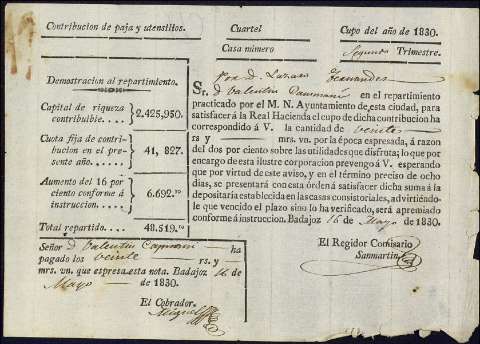 Contribucion de paja y utensilios.
Cuartel
Cupo del año de 1830.
Casa número
Segundo Trimestre.
Demostracion al repartimiento.
Capital de riqueza contribuible.... 2.425,950.
Cuota fija de contribucion en el presente año..... 41, 827.
Aumento del 16 por ciento conforme á instruccion. ... 6.692.
Total repartido. 48.519.
Por D. Lazaro Fernandes
Sr. D Valentin en el repartimiento
practicado por el M. N. Ayuntamiento de esta ciudad, para
satisfacer á la Real Hacienda el cupo de dicha contribucion ha
correspondido á V. la cantidad de veinte
rs y — mrs. vn. por la época espresada, á razon
del dos por ciento sobre las utilidades que disfruta; lo que por
encargo de esta ilustre corporacion prevengo á V. esperando
que por virtud de este aviso, y en el término preciso de ocho
dias, se presentará con esta órden á satisfacer dicha suma á la
depositaría establecida en las casas consistoriales, advirtiéndo-
le que vencido el plazo sino lo ha verificado, será apremiado
conforme á instruccion. Badajoz 16 de Mayo de 1830.
El Regidor Comisario
Sanmartin
Señor D Valentin ha
pagado los veinte — rs. y —
mrs. vn. que espresa esta nota. Badajoz 16 de
Mayo — de 1830.
El Cobrador.
Miguel